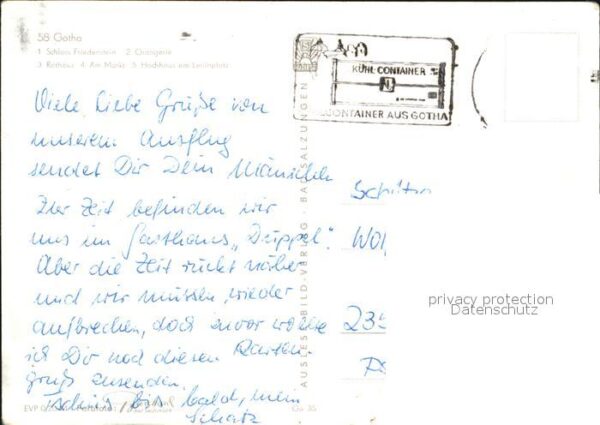 58 Gotha
1 Schloss Friedenstein 2 Orangerie
3 Rathaus 4 Am Markt 5 Hochhaus am Leninplatz
KÜHLCONTAINER
CONTAINER AUS GOTHA
Viele liebe Grüße von
unserem Ausflug
sendet Dir Dein Mänschen
Zur Zeit befinden wir
uns im Gasthaus „Düppel".
Aber die Zeit rückt näher
und wir müssen wieder
aufbrechen, doch zuvor wollte
ich Dir noch diesen Karten-
gruß zusenden.
Tschüß bis bald, mein
Schatz
AUSLESE-BILD-VERLAG · BAD SALZUNGEN
privacy protection
Datenschutz
EVP
Go 35